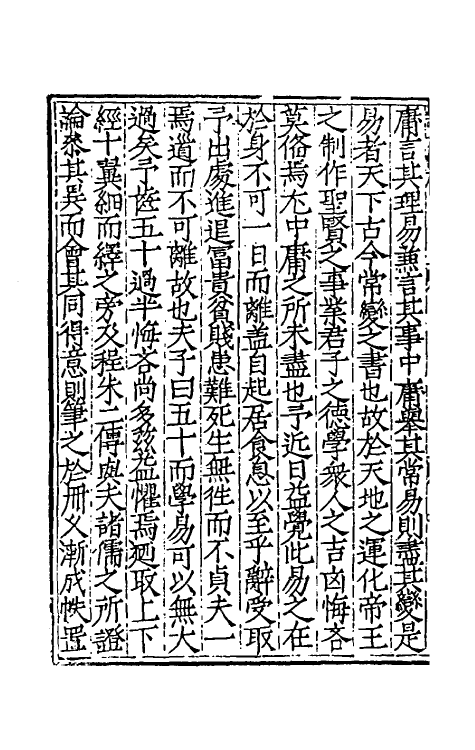 庸言其理易兼言其事中庸舉其常易則盡其變是
易者天下古今常變之書也故於天地之運化帝王
之制作聖賢之事業君子之德學衆人之吉凶悔吝
莫俻焉尢中庸之所未盡也予近日益覺此易之在
於身不可一日而離盖自起居食息以至乎辭受取
予出處進退富貴貧賤患難死生無徃而不貞夫一
焉道而不可離故也夫子曰五十而學易可以無大
過矣予齒五十過半悔吝尚多兹益懼焉廼取上下
經十翼細而繹之旁及程朱二傳與夫諸儒之所證
論叅其異而會其同得意則筆之於冊乆漸成帙